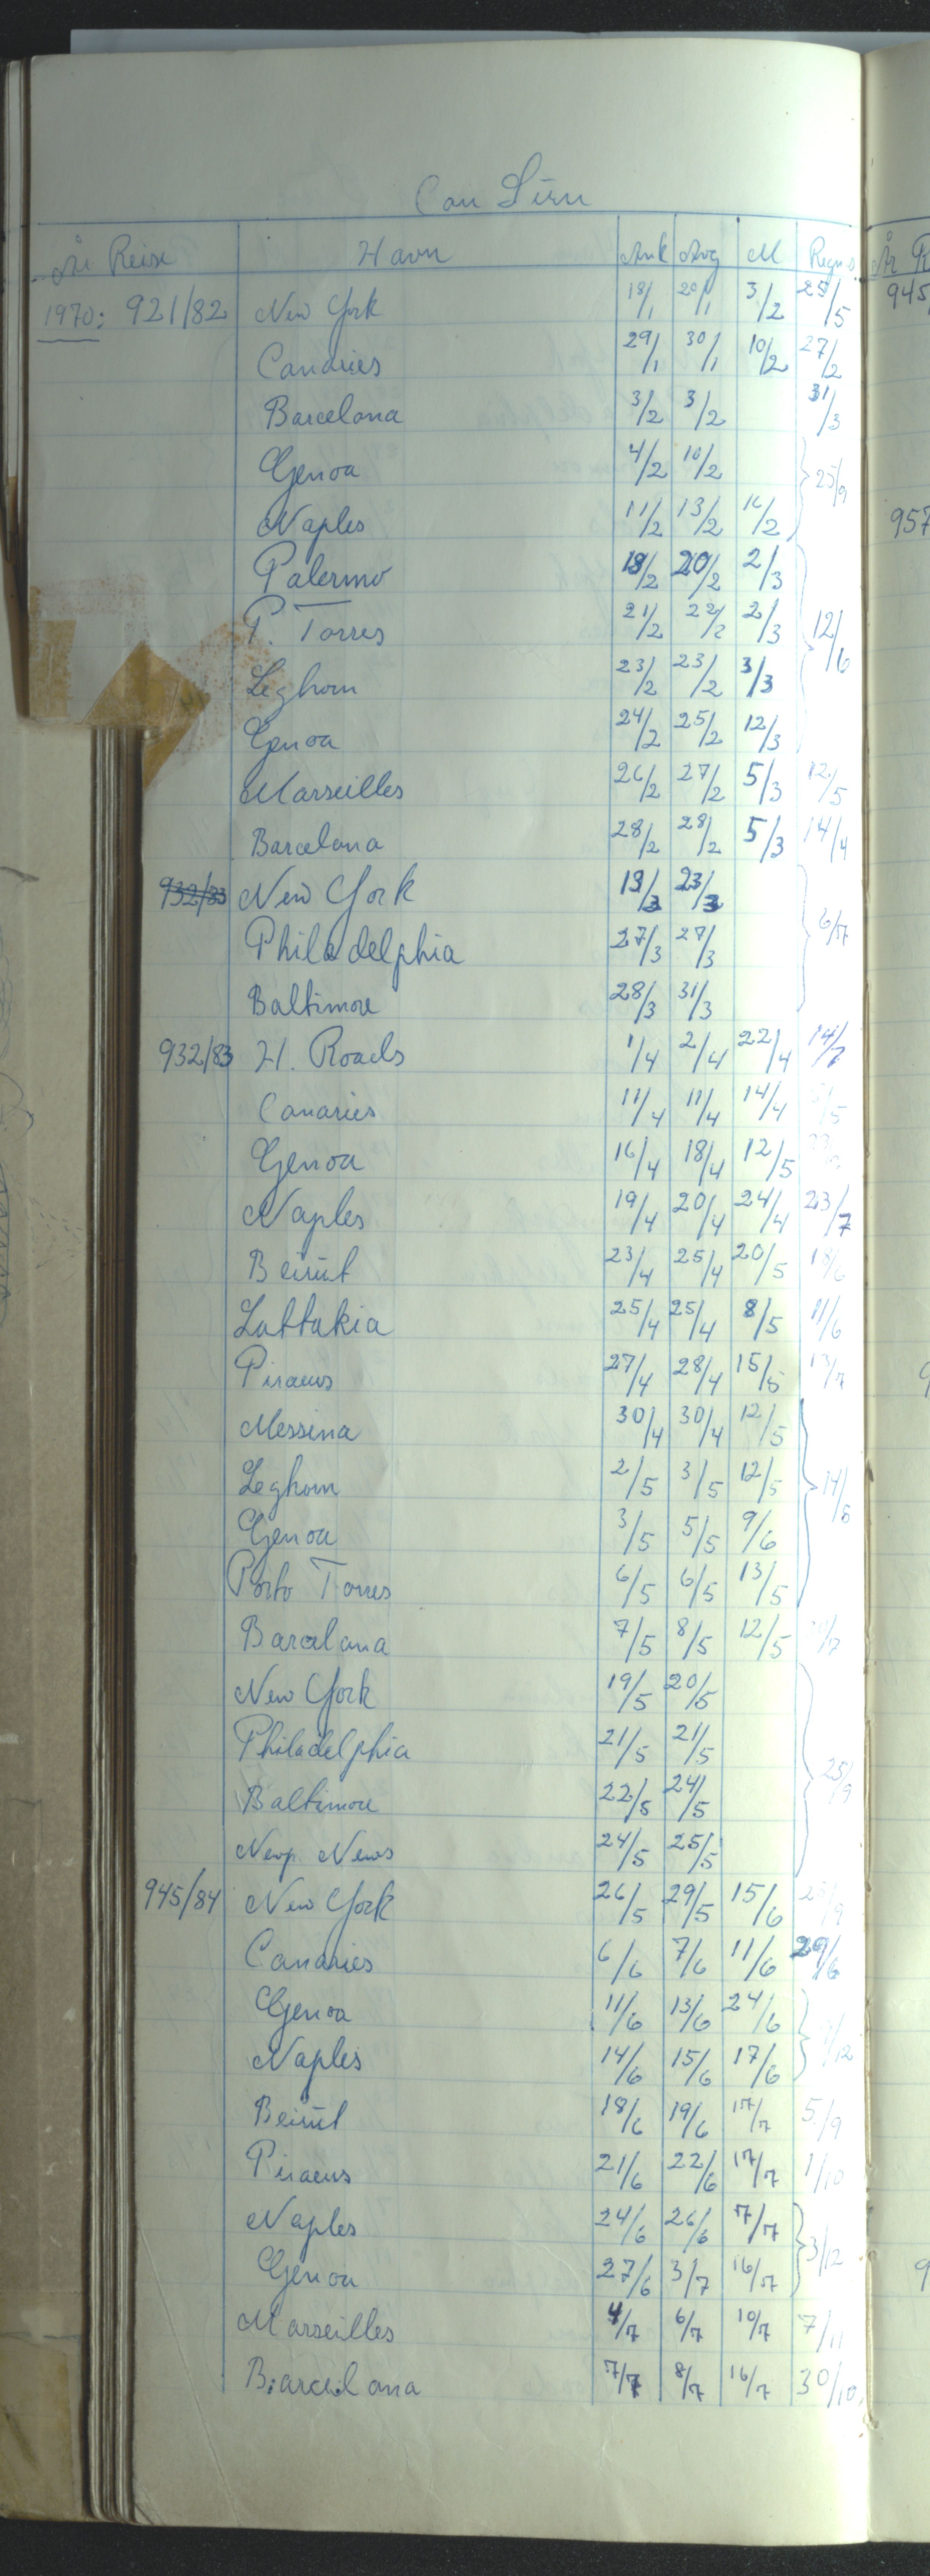 Con Lien
År Reise Havn Ank Avg M Regns.
1970: 921/82 New York 18/1 20/1 3/2 25/5
Canaries 29/1 30/1 10/2 27/2
Barcelona 3/2 3/2 31/3
Genoa 4/2 10/2 25/9
Naples 11/2 13/2 16/2
Palermo 18/2 20/2 2/3
P. Torres 21/2 22/2 2/3 12/6
Leghorn 23/2 23/2 3/3
Genoa 24/2 25/2 12/3
Marseilles 26/2 27/2 5/3 12/5
Barcelona 28/2 28/2 5/3 14/4
932/83 New York 19/3 23/3
Philadelphia 27/3 27/3 6/7
Baltimore 28/3 31/3
932/83 H. Roads 1/4 2/4 22/4 14/7
Canaries 11/4 11/4 14/4
Genoa 16/4 18/4 12/5
Naples 19/4 20/4 24/4 23/7
Beirut 23/4 25/4 20/5 18/6
Lattakia 25/4 25/4 8/5 11/6
Piraeus 27/4 28/4 15/5 13/7
Messina 30/4 30/4 12/5
Leghorn 2/5 3/5 12/5 14/8
Genoa 3/5 5/5 9/6
Porto Torres 6/5 6/5 13/5
Barcelona 7/5 8/5 12/5
New York 19/5 20/5
Philadelphia 21/5 21/5
Baltimore 22/5 24/5 25/9
Newp. News 24/5 25/5
945/84 New York 26/5 29/5 15/6
Canaries 6/6 7/6 11/6 29/6
Genoa 11/6 13/6 24/6
Naples 14/6 15/6 17/6
Beirut 18/6 19/6 17/7 5/9
Piraeus 21/6 22/6 17/7 1/10
Naples 24/6 26/6 7/7 3/12
Genoa 27/6 3/7 16/7
Marseilles 4/7 6/7 10/7 7/11
Barcelona 7/7 8/7 16/7 30/10
År R
945
957
9
9